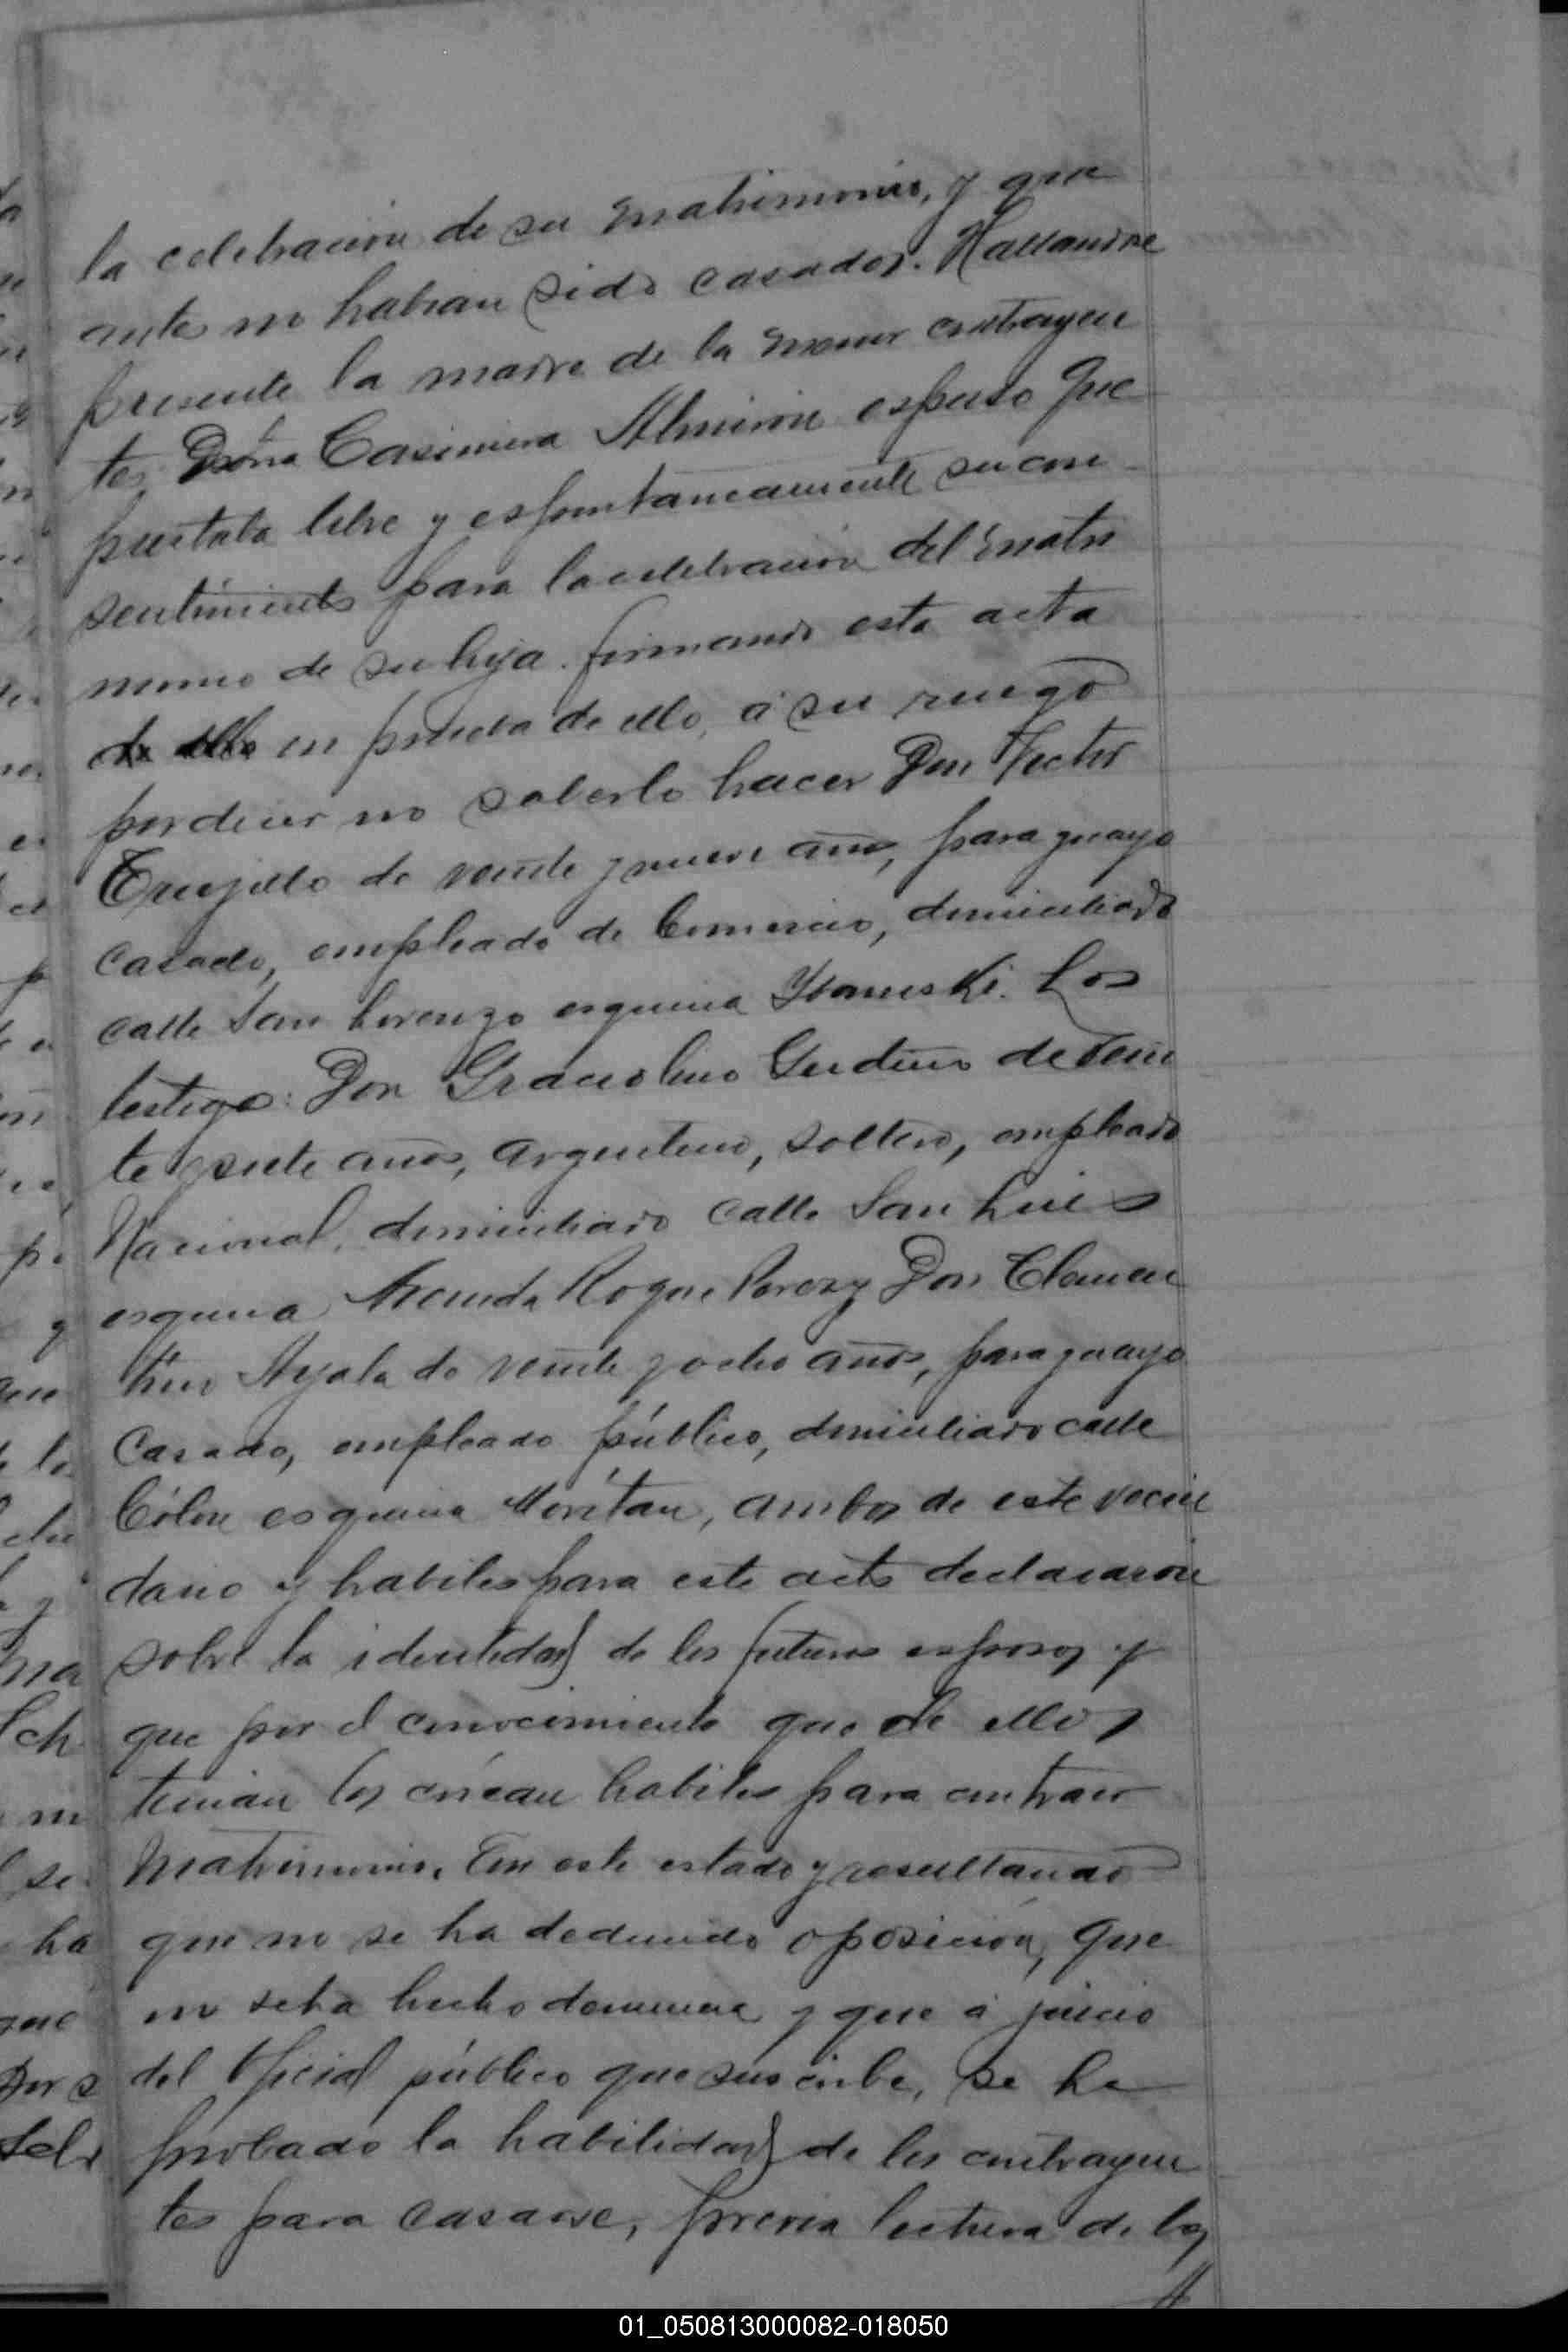 la celebracion de su matrimonio, y que
antes no habian sido casados. Hallandose
presente la madre de la menor contrayen
tes Doña Casimira Almiron espuso que
prestaba libre y espontaneamente su con
sentimiento para la celebracion del matri
monio de su hija. firmando esta acta
en prueba de ello, á su ruego
por decir no saberlo hacer Don Hector
Trujillo de veinte y nueve años, paraguayo
casado, empleado de Comercio, domiciliado
calle San Lorenzo esquina Los
testigos: Don Graciolino de vein
te y siete años, argentino, soltero, empleado
Nacional, domiciliado calle San Luis
esquina Avenida Roque Perez y Don Clemen
tino Ayala de veinte y ocho años, paraguayo
casado, empleado público, domiciliado calle
Cólon esquina ambos de este vecin
dario y habiles para este acto declararon
sobre la identidad de los futuros esposos y
que por el conocimiento que de ellos
tenian los creían habiles para contraer
matrimonio. En este estado y resultando
que no se ha deducido oposición, que
no se ha hecho denuncia y que á juicio
del Oficial público que suscribe, se ha
probado la habilidad de los contrayen
tes para casarse, previa lectura de los
01_050813000082-018050